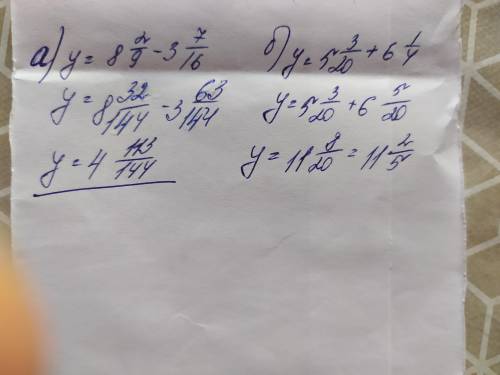 а) y = 8 2/9 - 3 7/16
y = 8 32/144 - 3 63/144
y = 4 113/144
б) y = 5 3/20 + 6 1/4
y = 5 3/20 + 6 5/20
y = 11 8/20 = 11 2/5